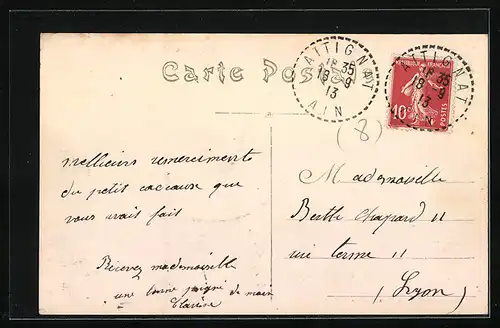 Carte Postale
ATTIGNAT
18 35
18 -9
13
AIN
ATTIGNAT
18 35
18 -9
13
AIN
REPUBLIQUE FRANÇAISE
10c
POSTES
(8)
meilleurs remerciments
du petit cadeaux que
vous avait fait
Recevez mademoiselle
une bonne poigné de main
Clarisse
Mademoiselle
Berthe Chapard 11
rue terme 11
(Lyon)